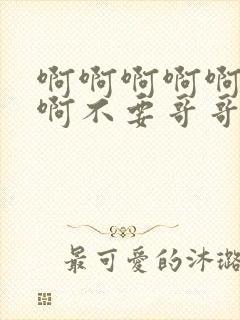 啊啊啊啊啊
啊不要哥哥
最可爱的沐璐